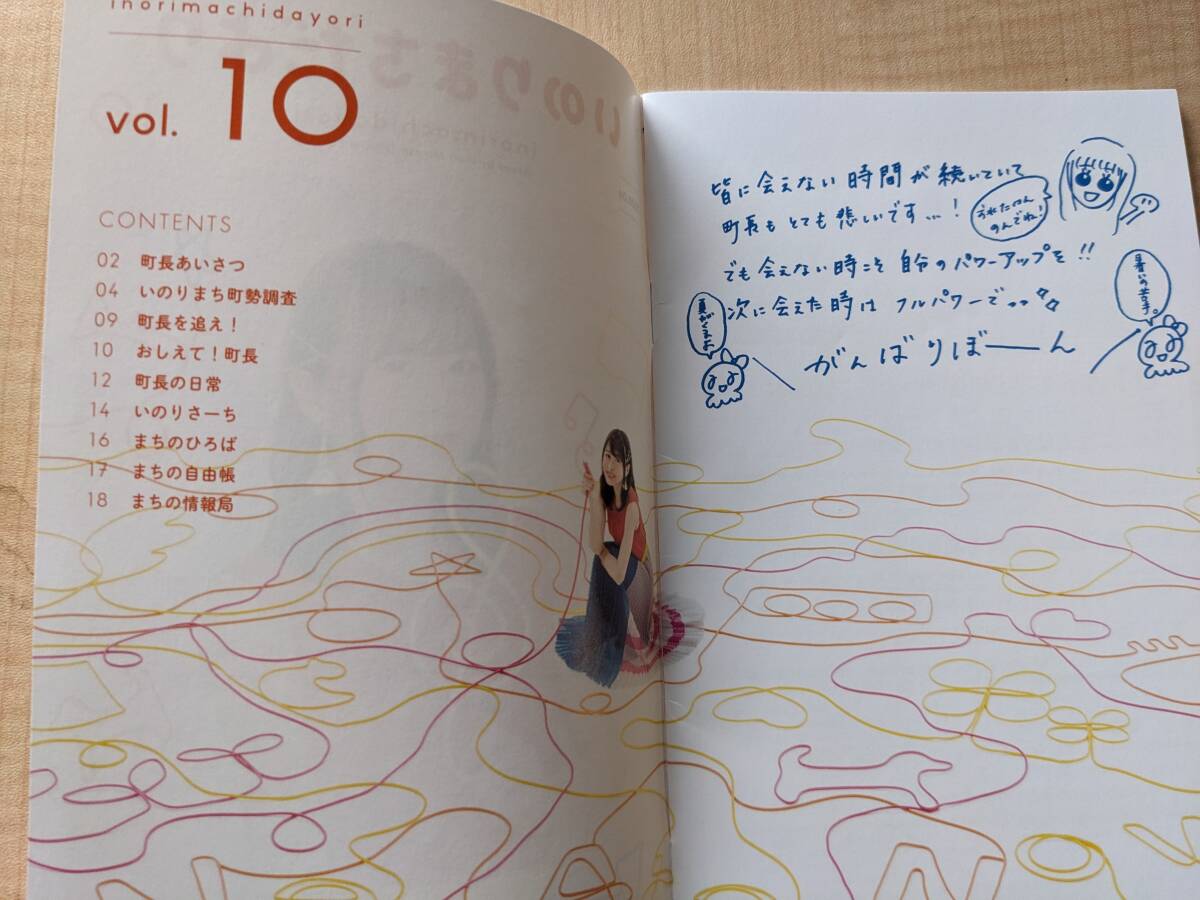 inorimachidayori
vol. 10
CONTENTS
02 町長あいさつ
04 いのりまち町勢調査
09 町長を追え！
10 おしえて！町長
12 町長の日常
14 いのりさーち
16 まちのひろば
17 まちの自由帳
18 まちの情報局
皆に会えない時間が続いていて
町長もとても悲しいです…！
でも会えない時こそ自分のパワーアップを!!
次に会えた時はフルパワーでっっ
がんばりぼーーん
のんでね！
夏がくるよ
暑いの苦手。